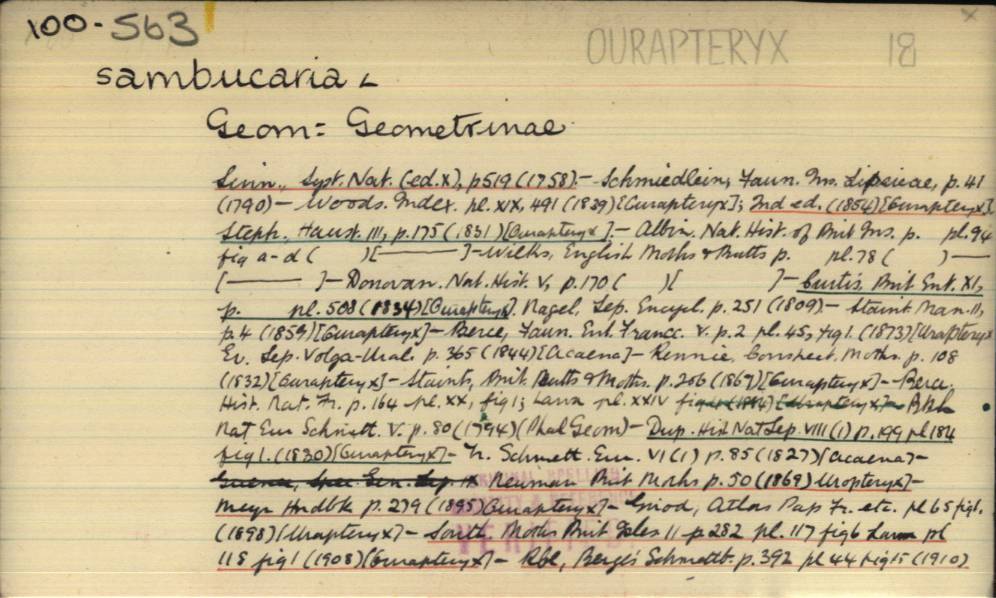 100-563
OURAPTERYX 18
sambucaria L
Geom= Geometrinae
Linn., Syst. Nat. (ed. X), p519 (1758).— Schmiedlein, Faun. Ins. Lipsicae, p. 41
(1790)— Woods. Index. pl. XIX, 491 (1839) [Ourapteryx]; 2nd ed. (1854) [Ourapteryx].
Steph., Haust. III, p. 175 (1831) [Ourapteryx].— Albin. Nat. Hist. of Brit Ins. p. pl. 94
fig a-d ( ) [———]—Wilks, English Moths & Butts p. pl. 78 ( )—
[——— ]—Donovan. Nat. Hist. V, p. 170 ( )[ ]—Curtis, Brit Ent. XI,
p. pl. 508 (1834) [Ourapteryx]. Nagel, Lep. Encycl. p. 251 (1809)— Staint. Man. II,
p. 4 (1859) [Ourapteryx]— Berce, Faun. Ent. Franc. V. p. 2 pl. 45, fig 1. (1873) [Urapteryx
Ev. Lep. Volga-Ural. p. 365 (1844) [Acaena]— Rennie, Conspect. Moths. p. 108
(1832) [Ourapteryx]— Staint, Brit. Butts & Moths. p. 206 (1867) [Ourapteryx]— Berce.
Hist. Nat. Fr. p. 164 pl. XX, fig 1; Larva pl. XXIV Bkh
Nat Eur Schmett. V. p. 80 (1794) (Phal Geom)— Dup. Hist Nat Lep. VIII (1) p. 199 pl 184
fig 1. (1830) [Ourapteryx]— Tr. Schmett. Eur. VI (1) p. 85 (1827) [Acaena]—
Newman Brit Moths p. 50 (1869) Uropteryx]—
Meyr Hndbk p. 279 (1895) Ourapteryx]— Girod, Atlas Pap Fr. etc. pl 65 fig 1.
(1898) [Urapteryx]— South Moths Brit Isles II p 282 pl. 117 fig 6 Larva pl
118 fig 1 (1908) [Ourapteryx]— Rbl, Berge's Schmettb. p. 392 pl 44 fig 15 (1910)